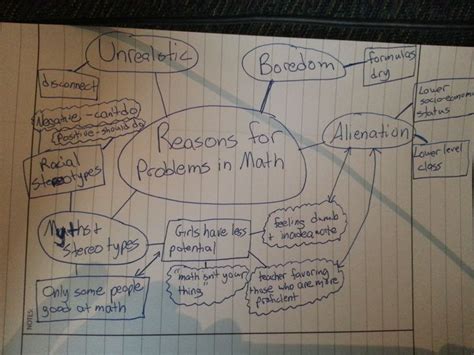 Unrealistic
Boredom
formulas
dry
disconnect
Lower
socio-economic
status
Negative - can't do
Positive - should do
Reasons for
Problems in Math
Alienation
Racial
Stereotypes
Lower level
class
Myths +
Stereotypes
Girls have less
potential
feeling dumb
+ inadequate
"math isn't your
thing"
teacher favoring
those who are more
proficient
Only some people
good at math
NOTES